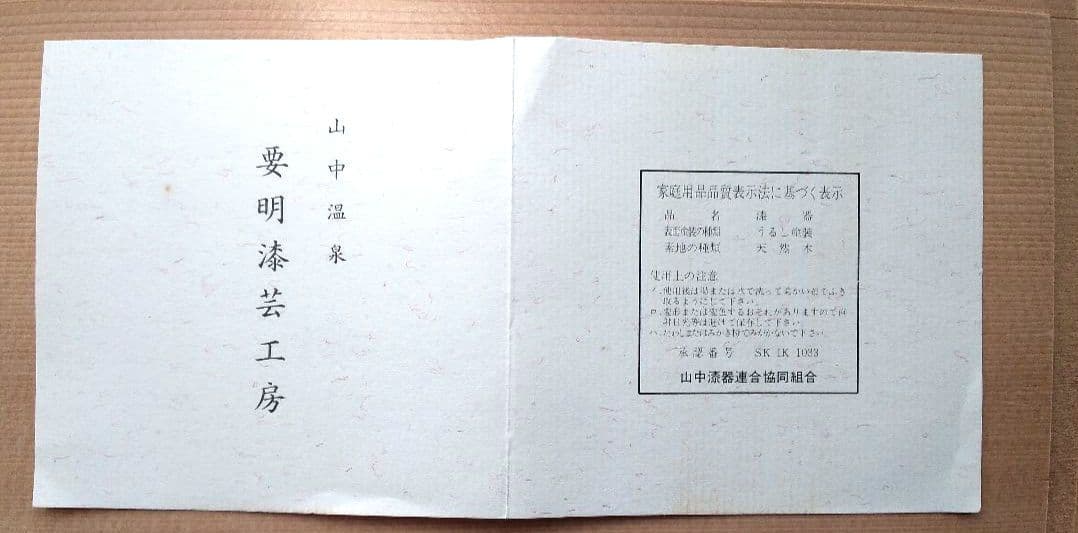 山中温泉
要明漆芸工房
家庭用品品質表示法に基づく表示
品名 漆器
表面塗装の種類 うるし塗装
素地の種類 天然木
使用上の注意
イ.使用後は湯または水で洗って柔かい布でふき
取るようにして下さい。
ロ.変形または変色するおそれがありますので直
射日光等は避けて保存して下さい。
ハ.たわしまたはみがき粉でみがかないで下さい。
承認番号 SK IK 1033
山中漆器連合協同組合